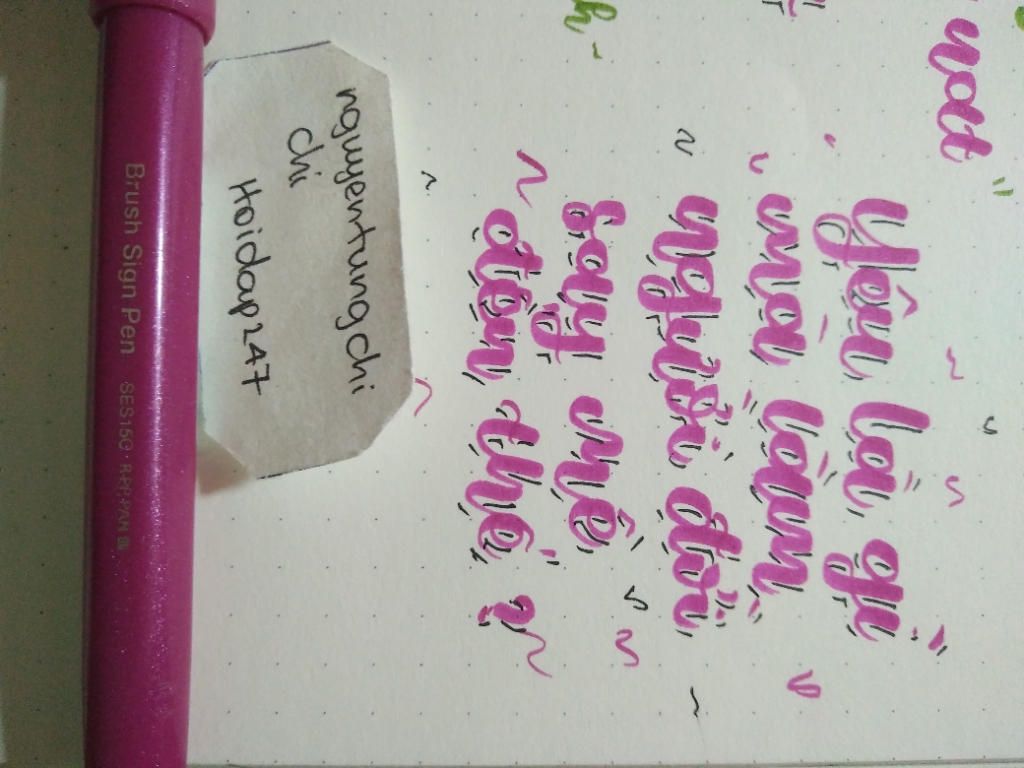 not
h
Yêu là gì
mà làm
người đời
say mê
đến thế ?
nguyentungchi
chi
Hoidap247
Brush Sign Pen SES15C